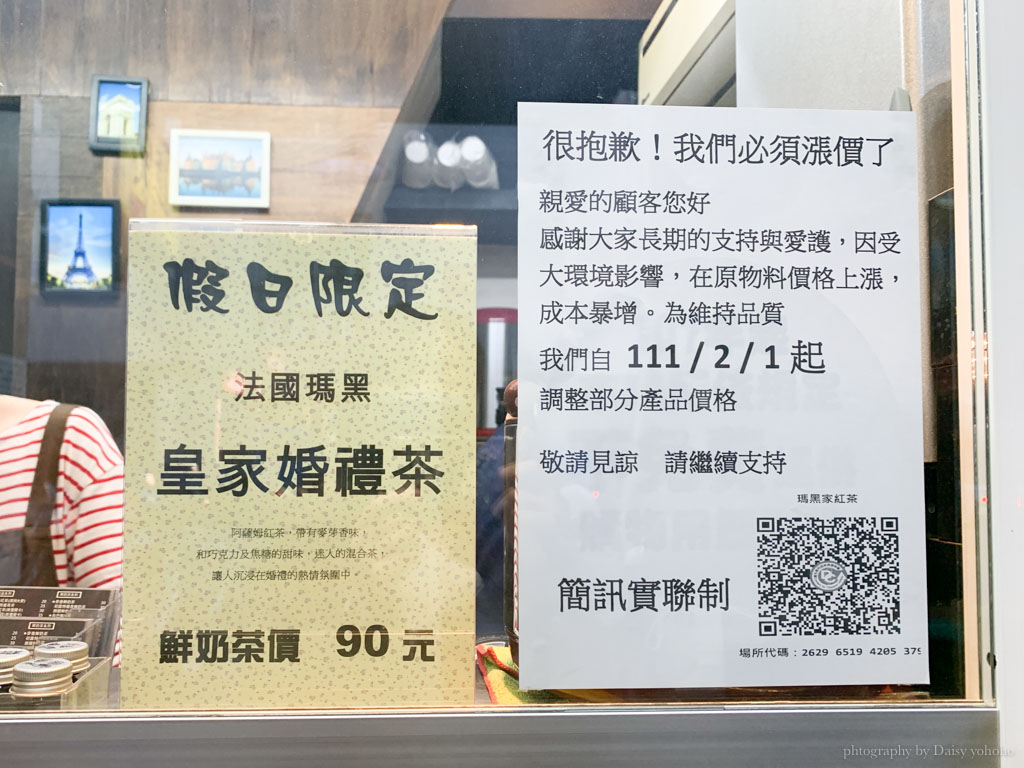 假日限定
法國瑪黑
皇家婚禮茶
阿薩姆紅茶，帶有麥芽香味，
和巧克力及焦糖的甜味，迷人的混合茶，
讓人沉浸在婚禮的熱情氛圍中。
鮮奶茶價 90 元
很抱歉！我們必須漲價了
親愛的顧客您好
感謝大家長期的支持與愛護，因受
大環境影響，在原物料價格上漲，
成本暴增。為維持品質
我們自 111 / 2 / 1 起
調整部分產品價格
敬請見諒 請繼續支持
瑪黑家紅茶
簡訊實聯制
場所代碼：2629 6519 4205 379
phtography by Daisy yohoho